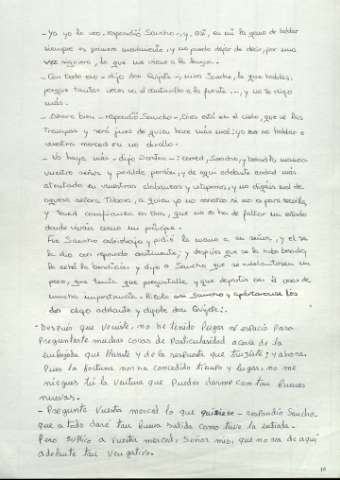 - Ya yo lo veo, respondió Sancho-, y, así, en mí la gana de hablar
siempre es primero movimiento, y no puedo dejar de decir, por una
vez siquiera, lo que me viene a la lengua.
- Con todo eso - dijo don Quijote -, mira Sancho, lo que hablas,
porque tantas veces va el cantarillo a la fuente..., y no te digo
más.
- Ahora bien - respondió Sancho -, Dios está en el cielo, que ve las
trampas y será juez de quien hace más mal: yo en no hablar o
vuestra merced en no
- No haya más - dijo Dorotea -: corred, Sancho, y besad la mano a
vuestro señor y pedilde perdón, y de aquí adelante andad más
atentado en vuestras alabanzas y vituperios, y no digáis mal de
aquesa señora Tobosa, a quien yo no conozco si no es para servilla,
y tened confianza en Dios, que no os ha de faltar un estado
donde viváis como un príncipe.
Fue Sancho cabizbajo y pidió la mano a su señor, y él se
la dio con reposado continente; y después que se la hubo besado,
le echó la bendición y dijo a Sancho que se adelantasen un
poco, que tenía que preguntalle y que departir con él cosas de
mucha importancia. Hízolo así Sancho y apartáronse los
dos algo adelante y díjole don Quijote:
- Después que veniste, no he tenido lugar ni espacio para
preguntarte muchas cosas de particularidad acerca de la
embajada que llevaste y de la respuesta que trujiste; y ahora,
pues la fortuna nos ha concedido tiempo y lugar, no me
niegues tú la ventura que puedes darme con tan buenas
nuevas.
- Pregunte vuesta merced lo que quisiere - respondió Sancho,
que a todo daré tan buena salida como tuve la entrada.
Pero suplico a vuesta merced, señor mío, que no sea de aquí
adelante tan vengativo.